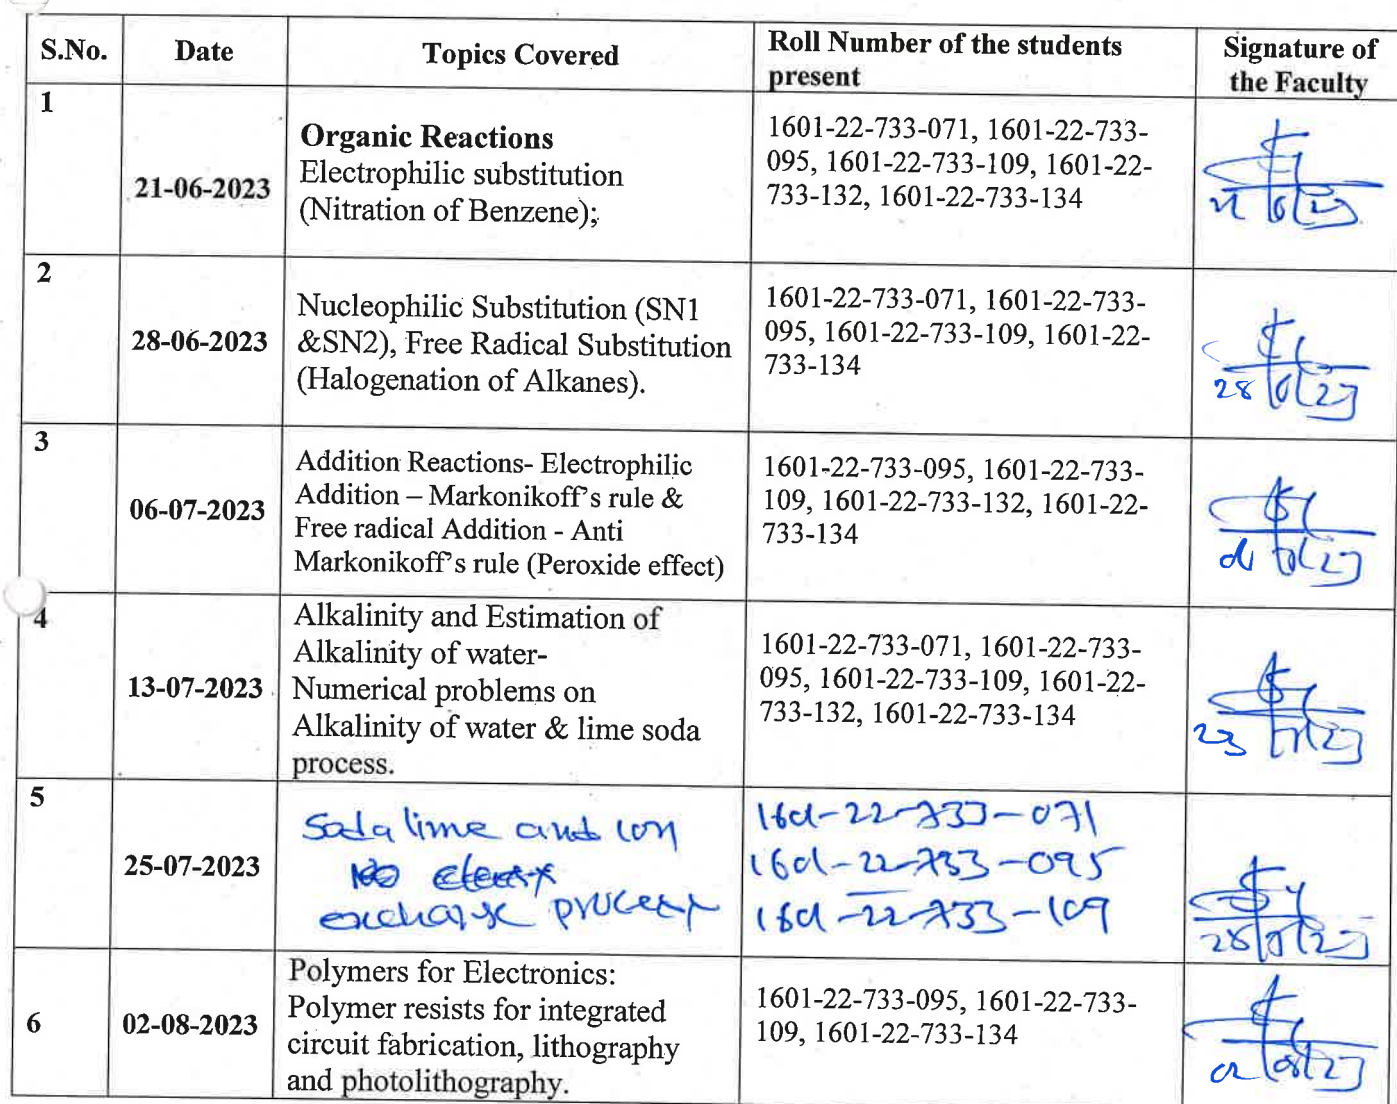 S.No.
Date
Topics Covered
Roll Number of the students
present
Signature of
the Faculty
1
21-06-2023
Organic Reactions
Electrophilic substitution
(Nitration of Benzene);
1601-22-733-071, 1601-22-733-
095, 1601-22-733-109, 1601-22-
733-132, 1601-22-733-134
2
28-06-2023
Nucleophilic Substitution (SN1
&SN2), Free Radical Substitution
(Halogenation of Alkanes).
1601-22-733-071, 1601-22-733-
095, 1601-22-733-109, 1601-22-
733-134
28/6/23
3
06-07-2023
Addition Reactions- Electrophilic
Addition – Markonikoff's rule &
Free radical Addition - Anti
Markonikoff's rule (Peroxide effect)
1601-22-733-095, 1601-22-733-
109, 1601-22-733-132, 1601-22-
733-134
4
13-07-2023
Alkalinity and Estimation of
Alkalinity of water-
Numerical problems on
Alkalinity of water & lime soda
process.
1601-22-733-071, 1601-22-733-
095, 1601-22-733-109, 1601-22-
733-132, 1601-22-733-134
5
25-07-2023
Soda lime and ion
exchange process
1601-22-733-071
1601-22-733-095
1601-22-733-109
6
02-08-2023
Polymers for Electronics:
Polymer resists for integrated
circuit fabrication, lithography
and photolithography.
1601-22-733-095, 1601-22-733-
109, 1601-22-733-134